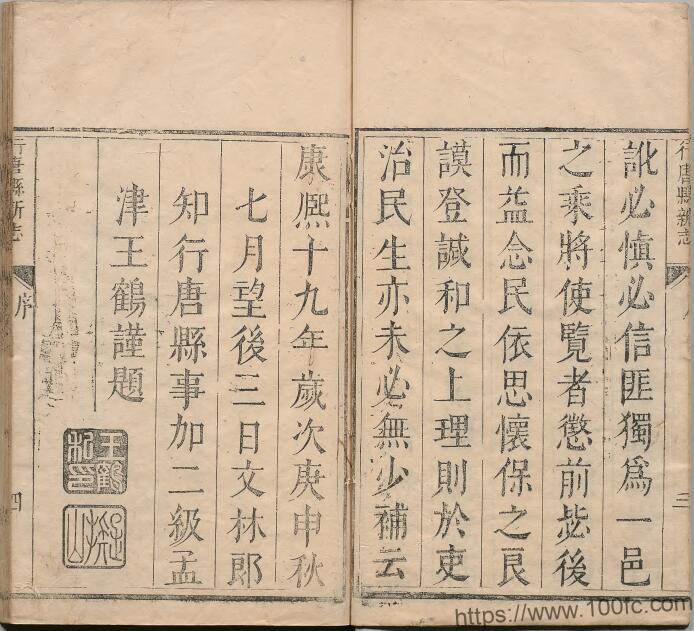 行唐縣新志
序
三
訛必慎必信匪獨為一邑
之乘將使覽者懲前毖後
而益念民依思懷保之良
謨登諴和之上理則於吏
治民生亦未必無少補云
康熈十九年歲次庚申秋
七月望後三日文林郎
知行唐縣事加二級孟
津王鶴謹題
王鶴
私印
行唐縣新志
序
四
https://www.100fc.com